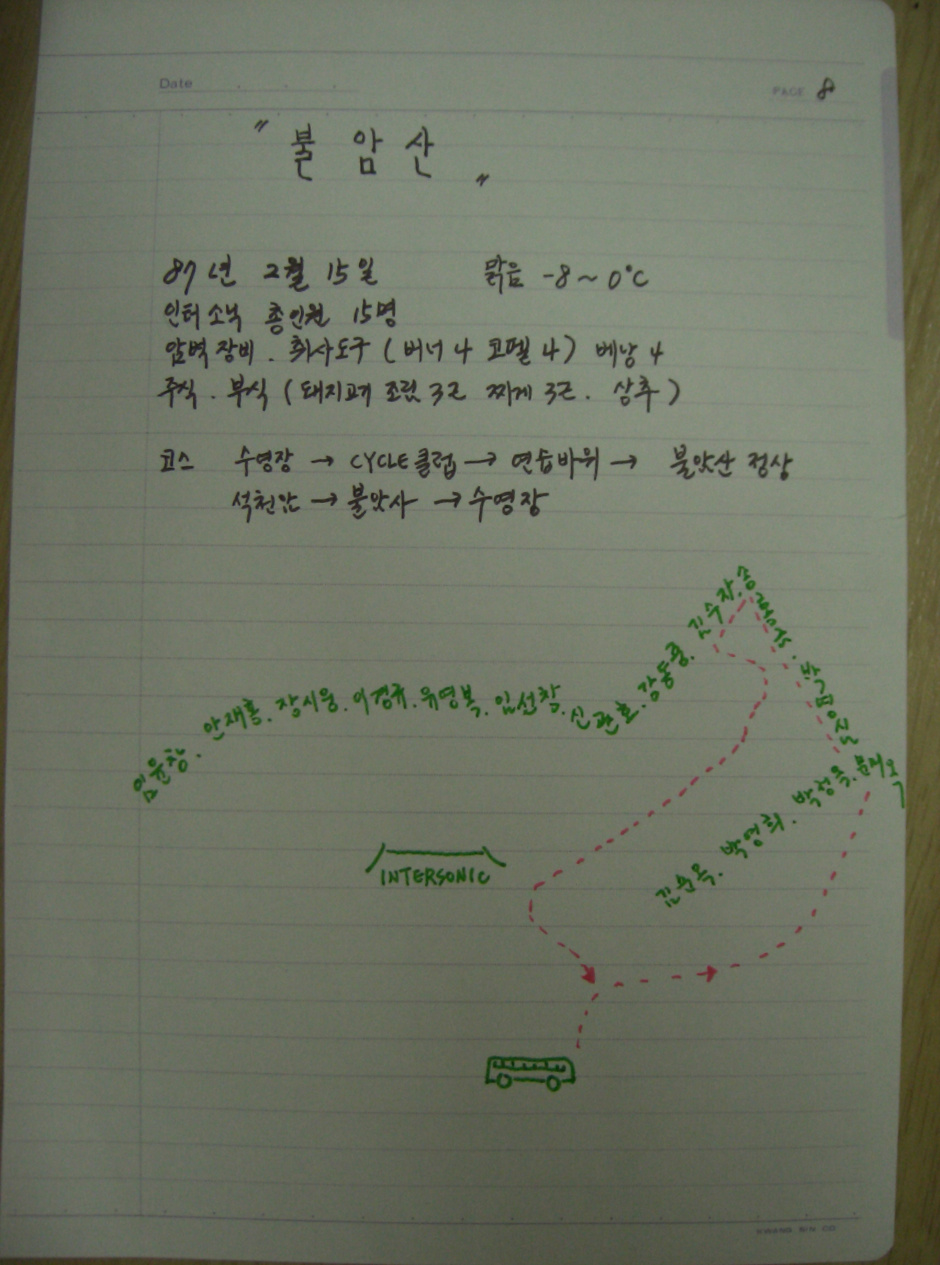 Date
PAGE 8
" 불 암 산 "
87년 2월 15일 맑음 -8 ~ 0°C
인터소닉 총인원 15명
암벽장비. 취사도구 (버너 4 코펠 4) 베낭 4
주식. 부식 (돼지고기 조림 3근 찌게 3근. 상추)
코스 수영장 → CYCLE클럽 → 연습바위 → 불암산 정상
석천암 → 불암사 → 수영장
임윤창. 안재홍. 장시웅. 이경규. 유영복. 임선착. 신관호. 강동풍. 김수자.
김순옥. 박영희. 박정옥.
INTERSONIC